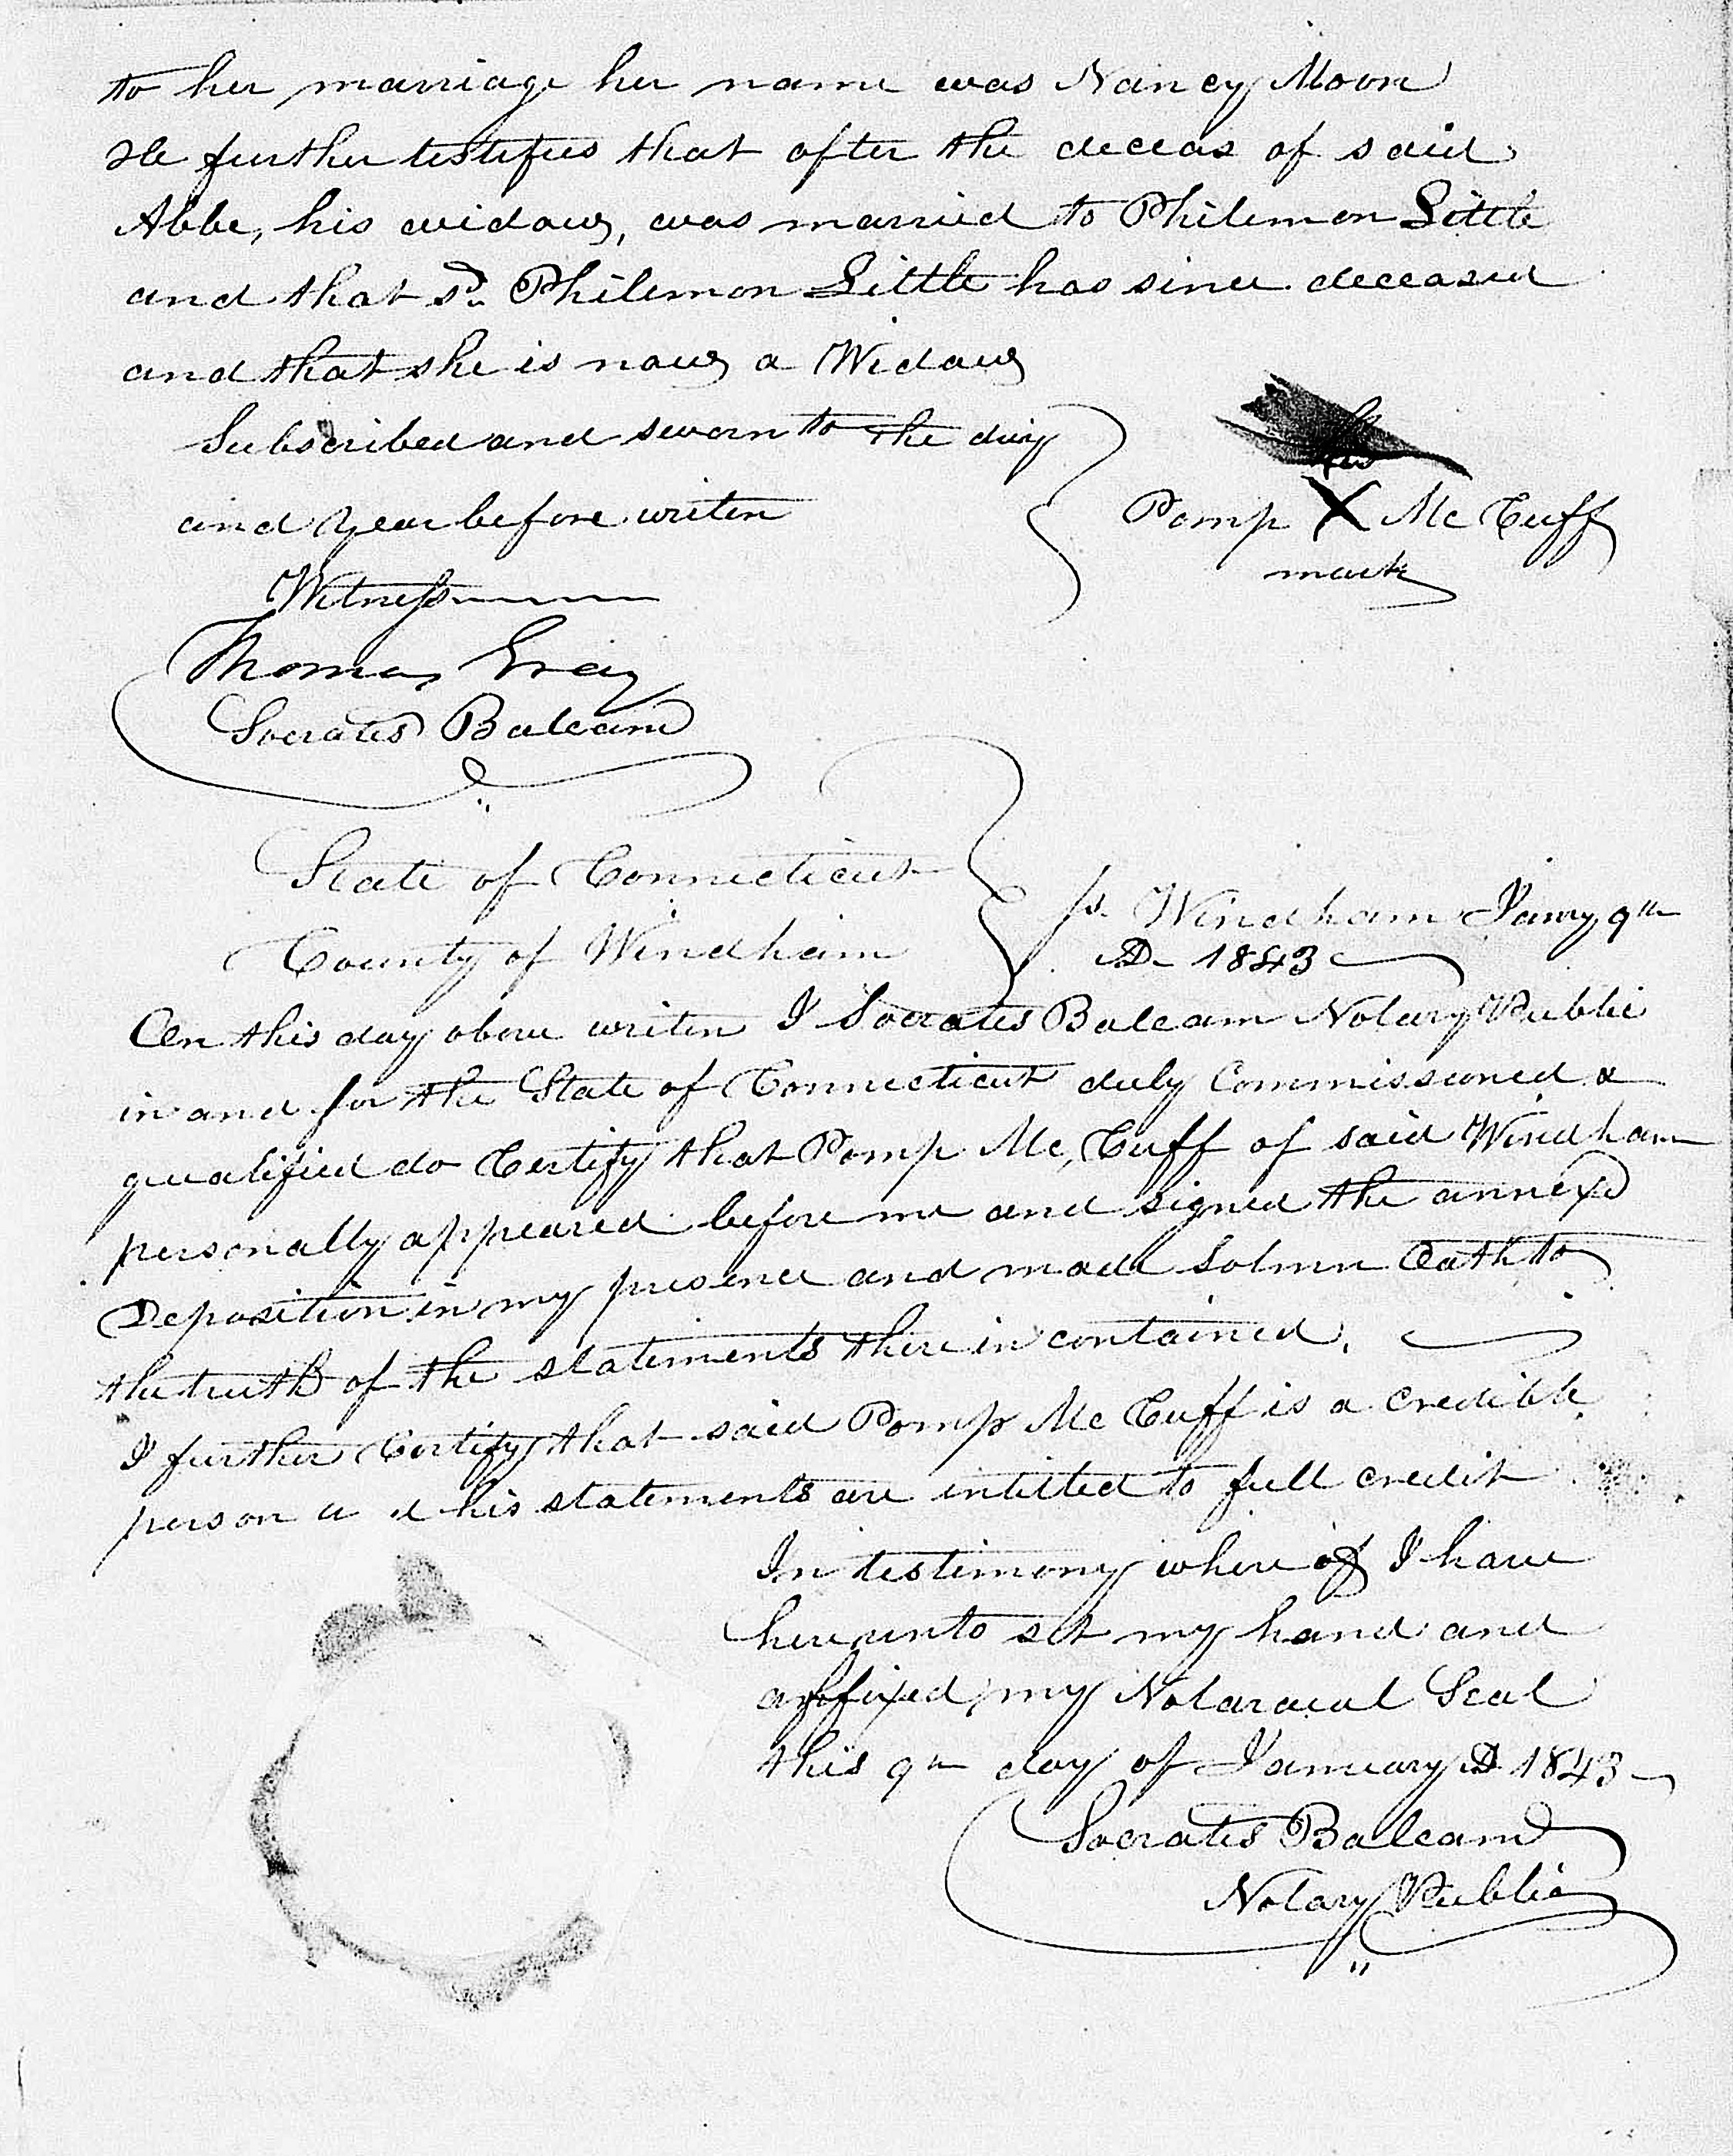 to her marriage her name was Nancy Moon
He further testifies that after the deceas of said
Abbe, his widow, was married to Philemon Little
and that sd. Philemon Little has since deceased
and that she is now a Widow
Subscribed and sworn to the day
and year before writen
his
Pomp X Mc Cuff
mark
Witness
Thomas Gray
Socrates Balcam
State of Connecticut
County of Windham
ss. Windham Jany 9th
AD 1843
On this day above writen I Socrates Balcam Notary Public
in and for the State of Connecticut duly Commissioned &
qualified do Certify that Pomp Mc, Cuff of said Windham
personally appeared before me and signed the annexd
Deposition in my presence and made Solmn Oath to
the truth of the statements there in contained.
I further Certify that said Pomp Mc Cuff is a Credible
person a d his statements are intitled to full credit
In testimony where of I have
hereunto set my hand and
affixed my Notaraial Seal
this 9th day of January AD 1843
Socrates Balcam
Notary Public